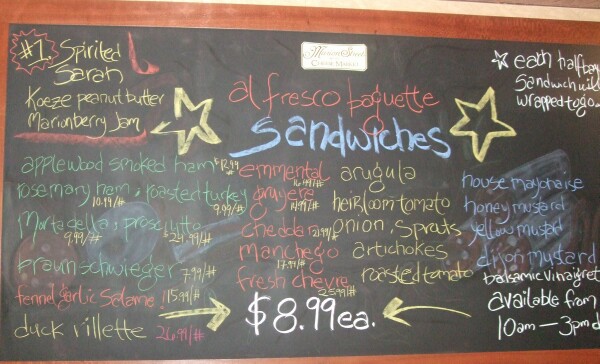 #1. Spirited
Sarah
Koeze peanut butter
Marionberry Jam
Cheese Market
al fresco baguette
sandwiches
each half bag
sandwich will
wrapped to go
applewood smoked ham
rosemary ham ; roasted turkey
10.99/# 9.99/#
Mortadella ; prosciutto
9.99/# 24.99/#
Braunschwieger 7.99/#
fennel garlic salame 15.99/#
duck rillette 26.99/#
emmental
gruyere
chedda
manchego
17.99/#
fresh chevre
25.99/#
arugula
heirloom tomato
onion, sprouts
artichokes
roasted tomato
house mayonaise
honey mustard
yellow mustad
dijon mustard
balsamic vinaigret
$8.99 ea.
available from
10am — 3pm d